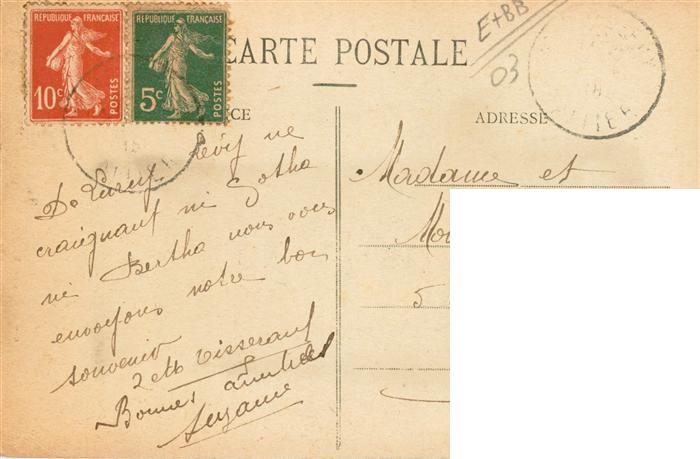 RÉPUBLIQUE FRANÇAISE
10c POSTES
RÉPUBLIQUE FRANÇAISE
5c POSTES
CARTE POSTALE
E+BB
03
CE
ADRESSE
ALLIER
De Lurcy-Lévy ne
craignant ni Gotha
ni Bertha nous vous
envoyons notre bon
souvenir
2 et Tisserant
Bonnes amitiés
Suzanne
Madame et
Mo
5